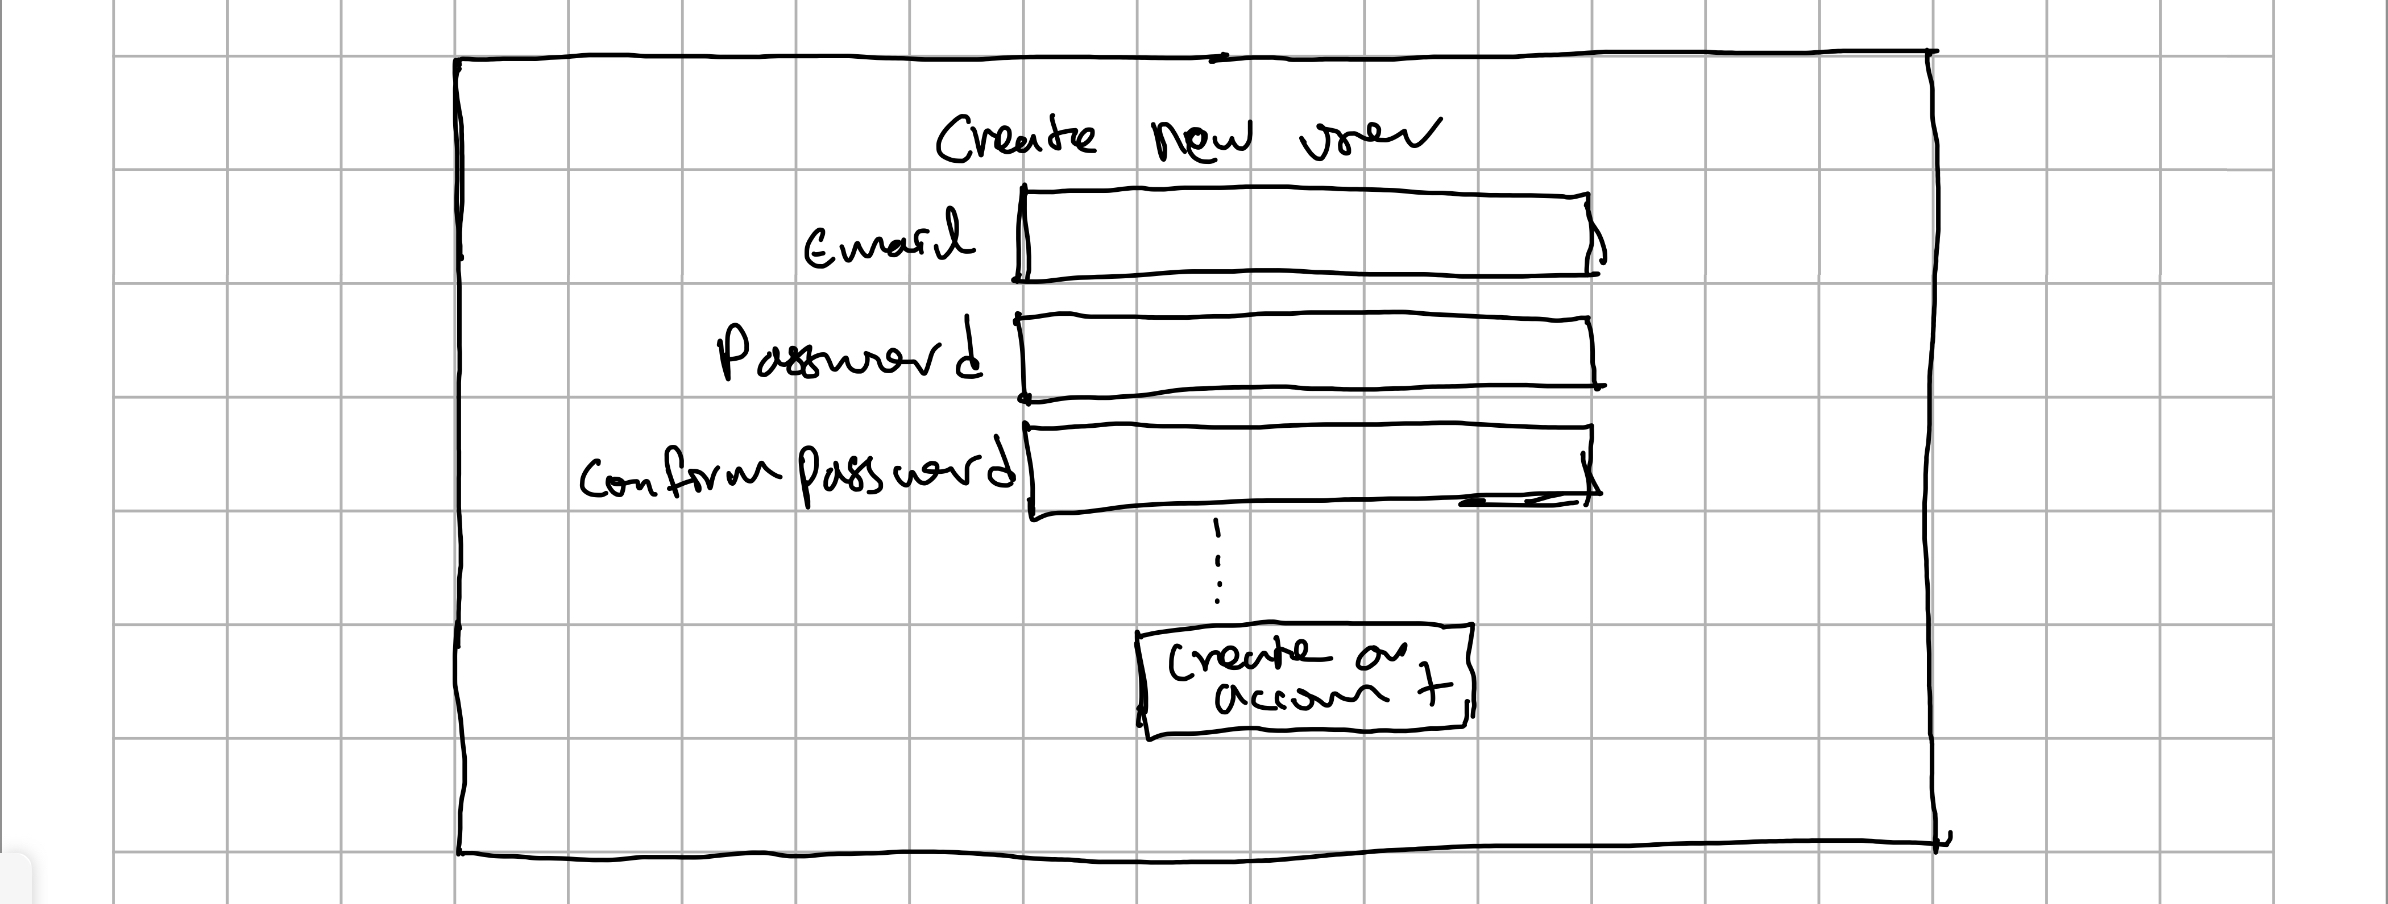 Create New user
Email
Password
Confirm Password
Create an
account